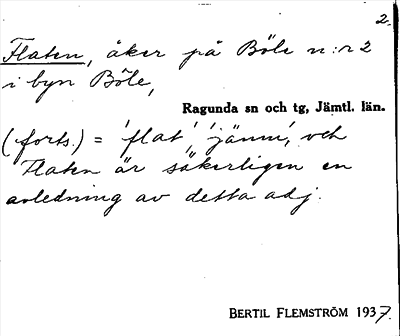 2.
Flaten, åker på Böle n:r 2
i byn Böle,
Ragunda sn och tg, Jämtl. län.
(forts.) = 'flat', 'jämn', och
Flaten är säkerligen en
avledning av detta adj.
BERTIL FLEMSTRÖM 1937.